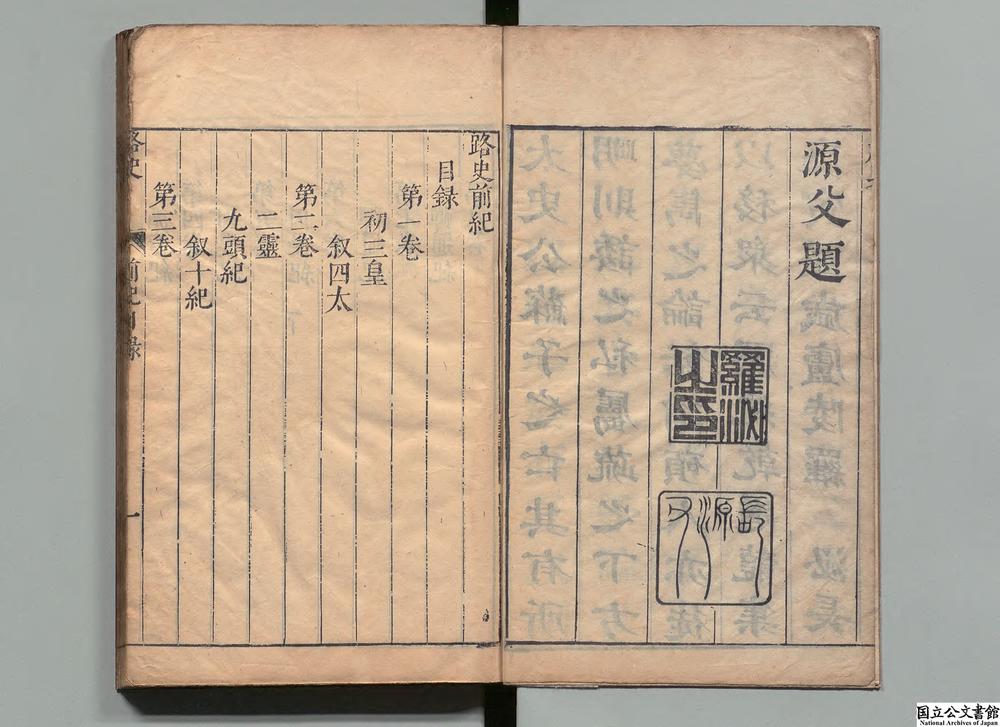 源父題
羅泌之印
長源父
路史前紀
目録
第一卷
初三皇
叙四太
第二卷
二靈
九頭紀
叙十紀
第三卷
路史
前紀目録
一
国立公文書館
National Archives of Japan